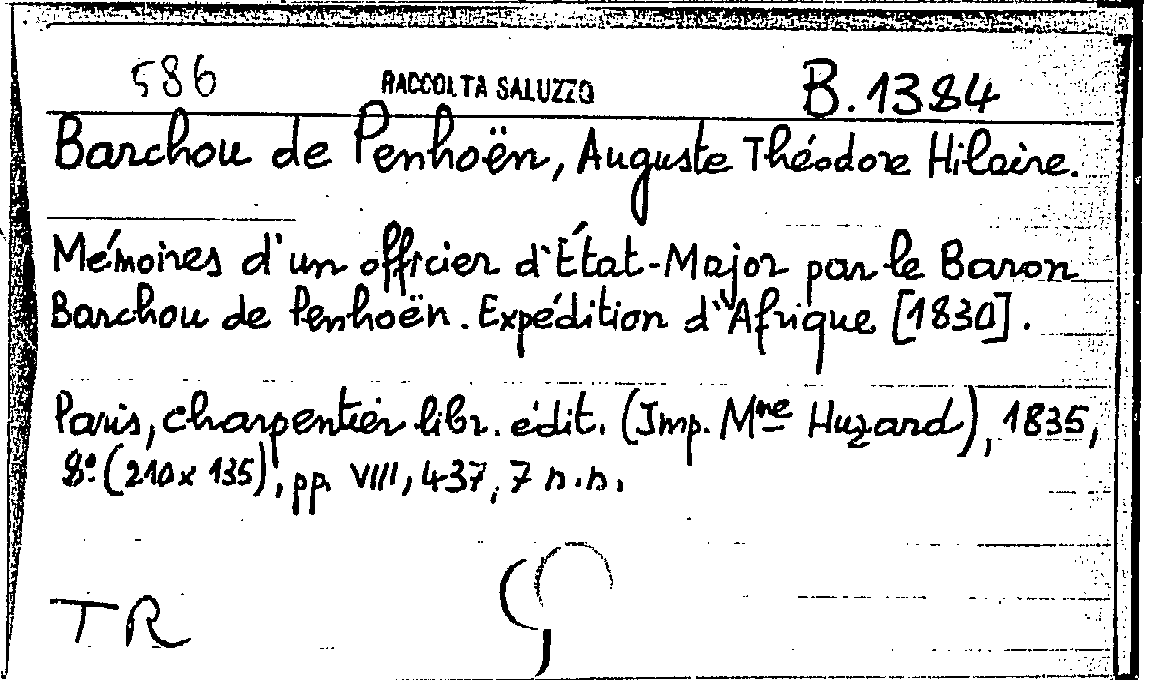 586 RACCOLTA SALUZZO B.1384
Barchou de Penhoën, Auguste Théodore Hilaire.
Mémoires d'un officier d'État-Major par le Baron
Barchou de Penhoën. Expédition d'Afrique [1830].
Paris, Charpentier libr. édit. (Imp. Mme Huzard), 1835,
8º (210x135), pp. VIII, 437, 7 n.n.
TR